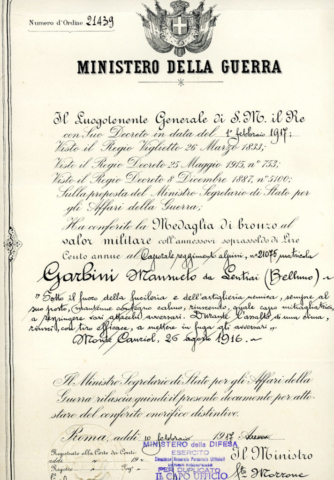 Numero d'Ordine 21439
MINISTERO DELLA GUERRA
Il Luogotenente Generale di S. M. il Re
con Suo Decreto in data del 1° febbraio 1917;
Visto il Regio Viglietto 26 Marzo 1833;
Visto il Regio Decreto 25 Maggio 1915 n° 753;
Visto il Regio Decreto 8 Dicembre 1887, n° 5100;
Sulla proposta del Ministro Segretario di Stato per
gli Affari della Guerra;
Ha conferito la Medaglia di bronzo al
valor militare coll'annessovi soprassoldo di Lire
Cento annue al Caporale reggimento alpini, n° 21075 matricola
Garbini Mansueto da (Belluno)
"Sotto il fuoco della fucileria e dell'artiglieria nemica, sempre al
suo posto, contegno calmo,
a respingere vari attacchi avversari. Durante l'assalto di una cima,
riuscì, con tiro efficace, a mettere in fuga gli avversari."
Monte Cauriol, 26 agosto 1916.
Il Ministro Segretario di Stato per gli Affari della
Guerra rilascia quindi il presente documento per atte-
stare del conferito onorifico distintivo.
Roma, addì 10 febbraio 1917
MINISTERO della DIFESA
ESERCITO
Registrato alla Corte dei Conti
Il Ministro
PER DUPLICATO
IL CAPO UFFICIO
Morrone